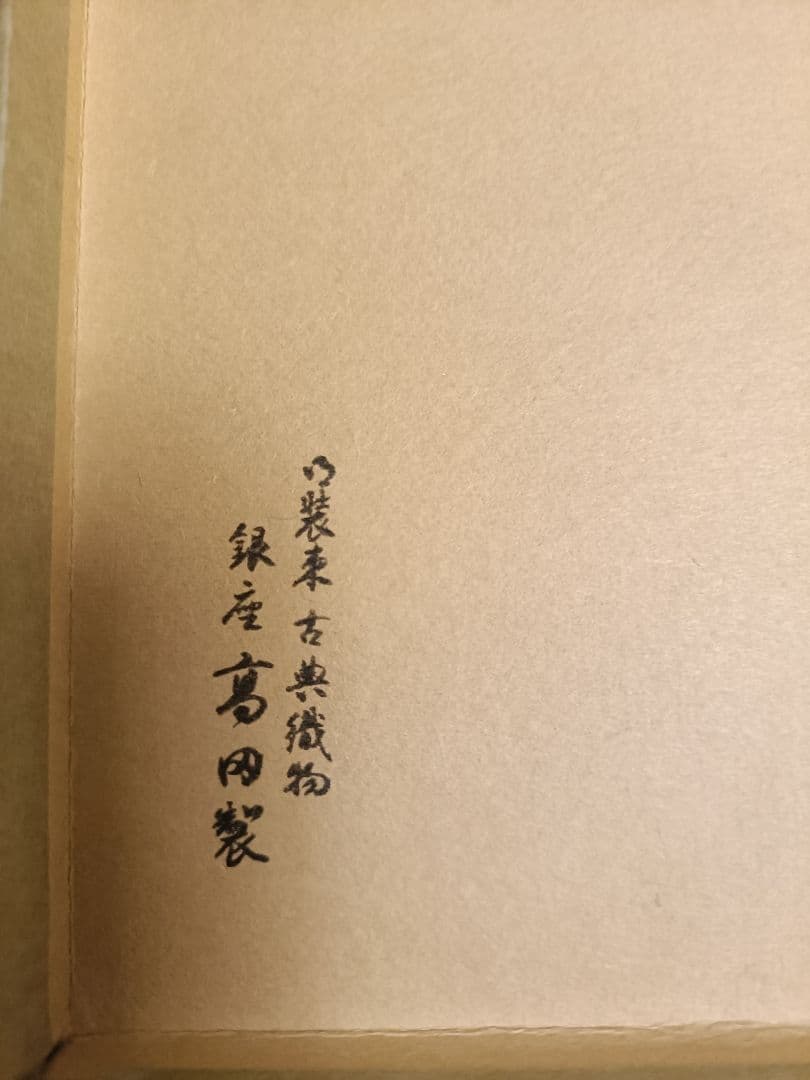 御装束 古典織物
銀座 高田製